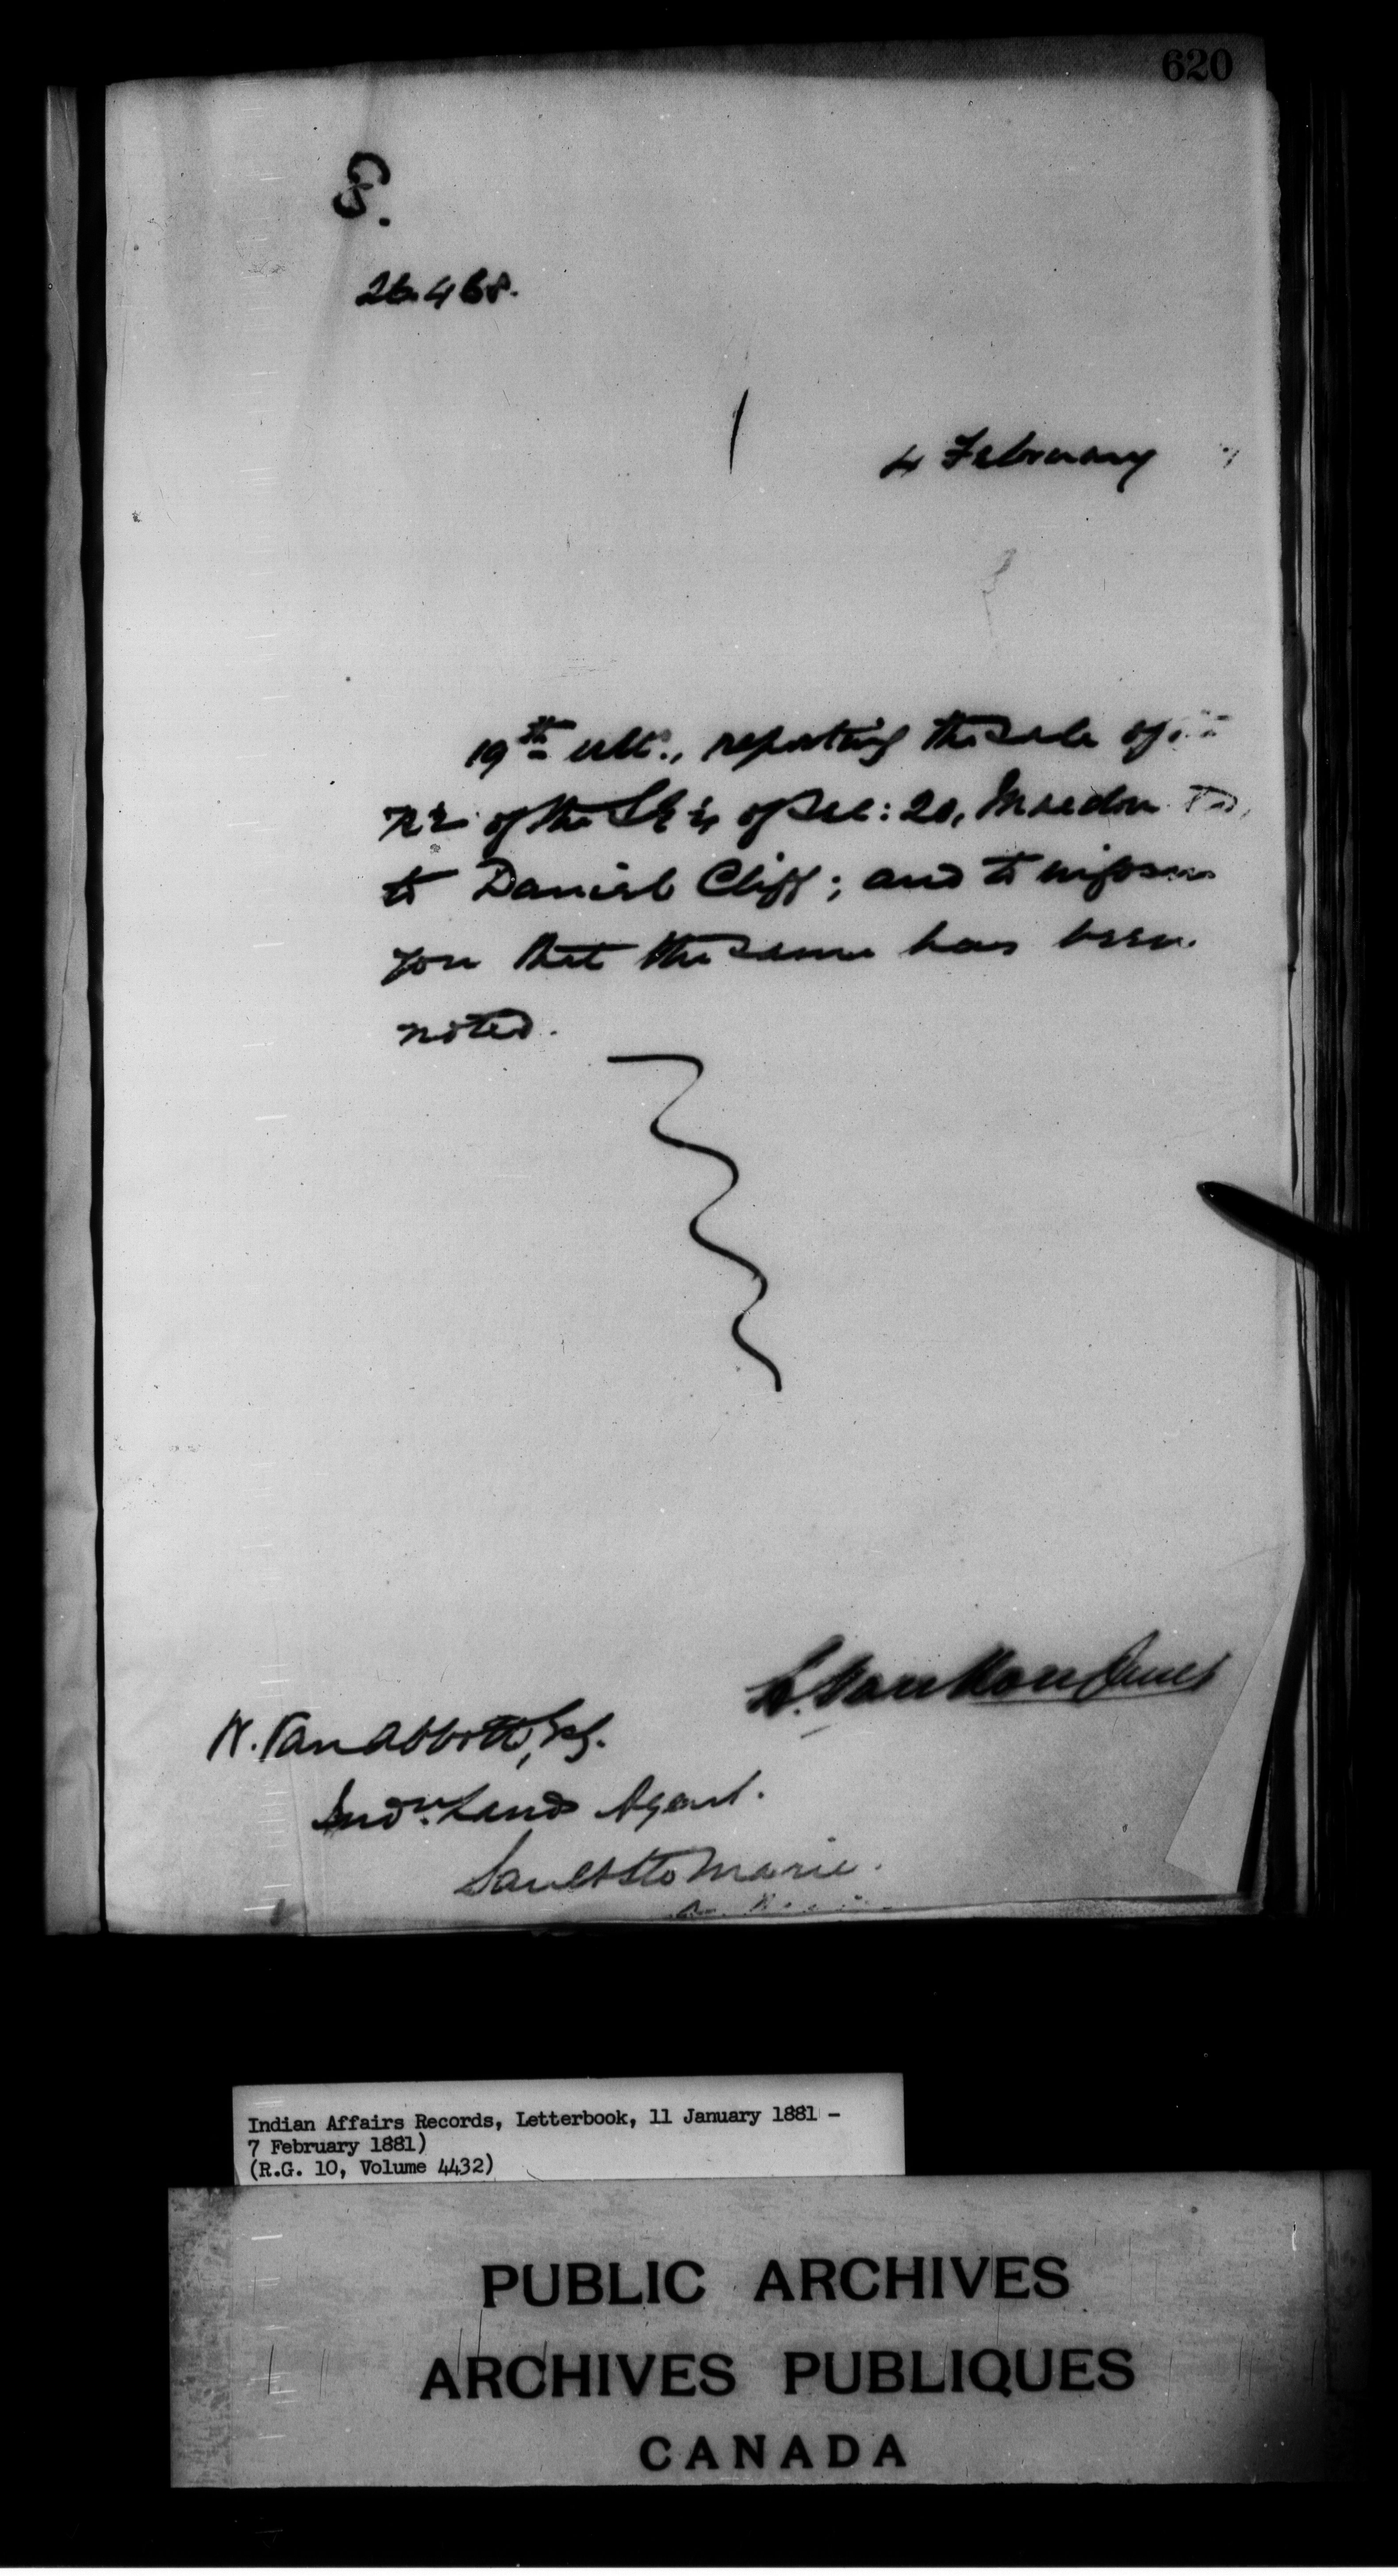 620
S.
26.468.
4 February
19th ult., reporting the sale of
N½ of the SE¼ of Sec: 20, Macdon
to Daniel Cliff; and to inform
you that the same has been
noted.
L. VanKoughnet
W. Van Abbott, Esq.
Indn. Land Agent.
Sault Ste Marie.
Indian Affairs Records, Letterbook, 11 January 1881 -
7 February 1881)
(R.G. 10, Volume 4432)
PUBLIC ARCHIVES
ARCHIVES PUBLIQUES
CANADA